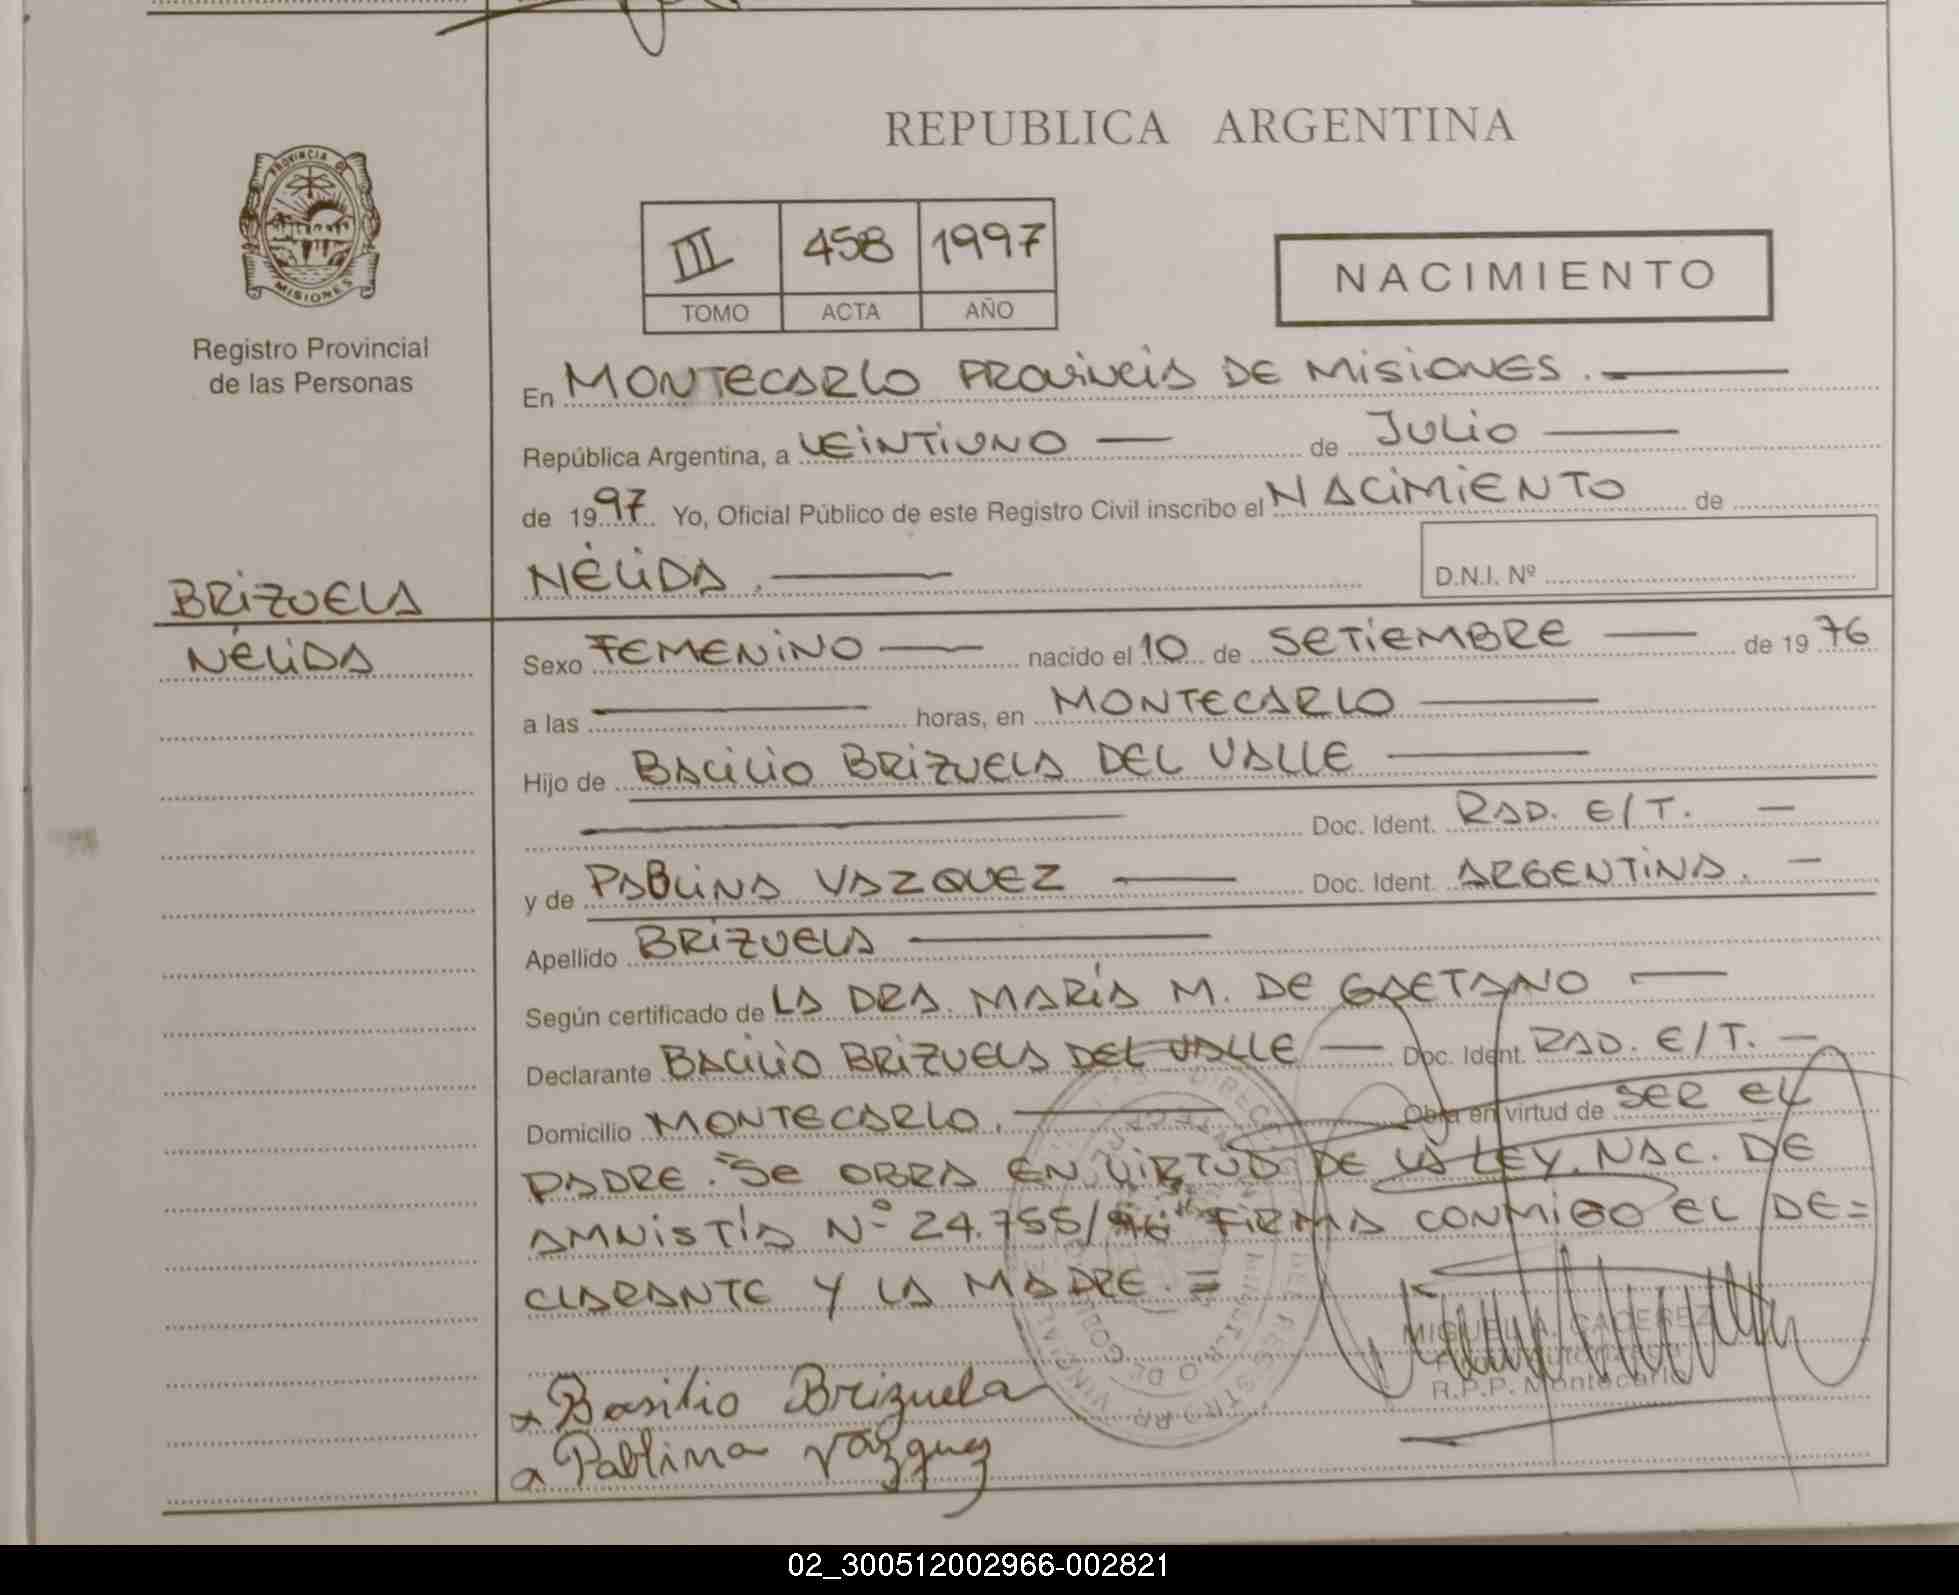 REPUBLICA ARGENTINA
PROVINCIA DE
MISIONES
Registro Provincial
de las Personas
III 458 1997
TOMO ACTA AÑO
NACIMIENTO
En MONTECARLO PROVINCIA DE MISIONES.
República Argentina, a VEINTIUNO de JULIO
de 1997 Yo, Oficial Público de este Registro Civil inscribo el NACIMIENTO de
NÉLIDA.
D.N.I. Nº
BRIZUELA
NÉLIDA
Sexo FEMENINO nacido el 10 de SETIEMBRE de 1976
a las horas, en MONTECARLO
Hijo de BACILIO BRIZUELA DEL VALLE
Doc. Ident. RAD. E/T.
y de PABLINA VAZQUEZ Doc. Ident. ARGENTINA.
Apellido BRIZUELA
Según certificado de LA DRA. MARÍA M. DE GAETANO
Declarante BACILIO BRIZUELA DEL VALLE Doc. Ident. RAD. E/T.
Domicilio MONTECARLO. Obra en virtud de SER EL
PADRE. "SE OBRA EN VIRTUD DE LA LEY. NAC. DE
AMNISTÍA Nº 24.755/96" FIRMA CONMIGO EL DE=
CLARANTE Y LA MADRE. =
MIGUEL A. CACEREZ
R.P.P. Montecarlo
Basilio Brizuela
Pablina Vázquez
02_300512002966-002821